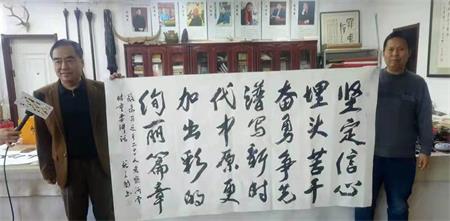 坚定信心
埋头苦干
奋勇争先
谱写新时
代中原更
加出彩的
绚丽篇章